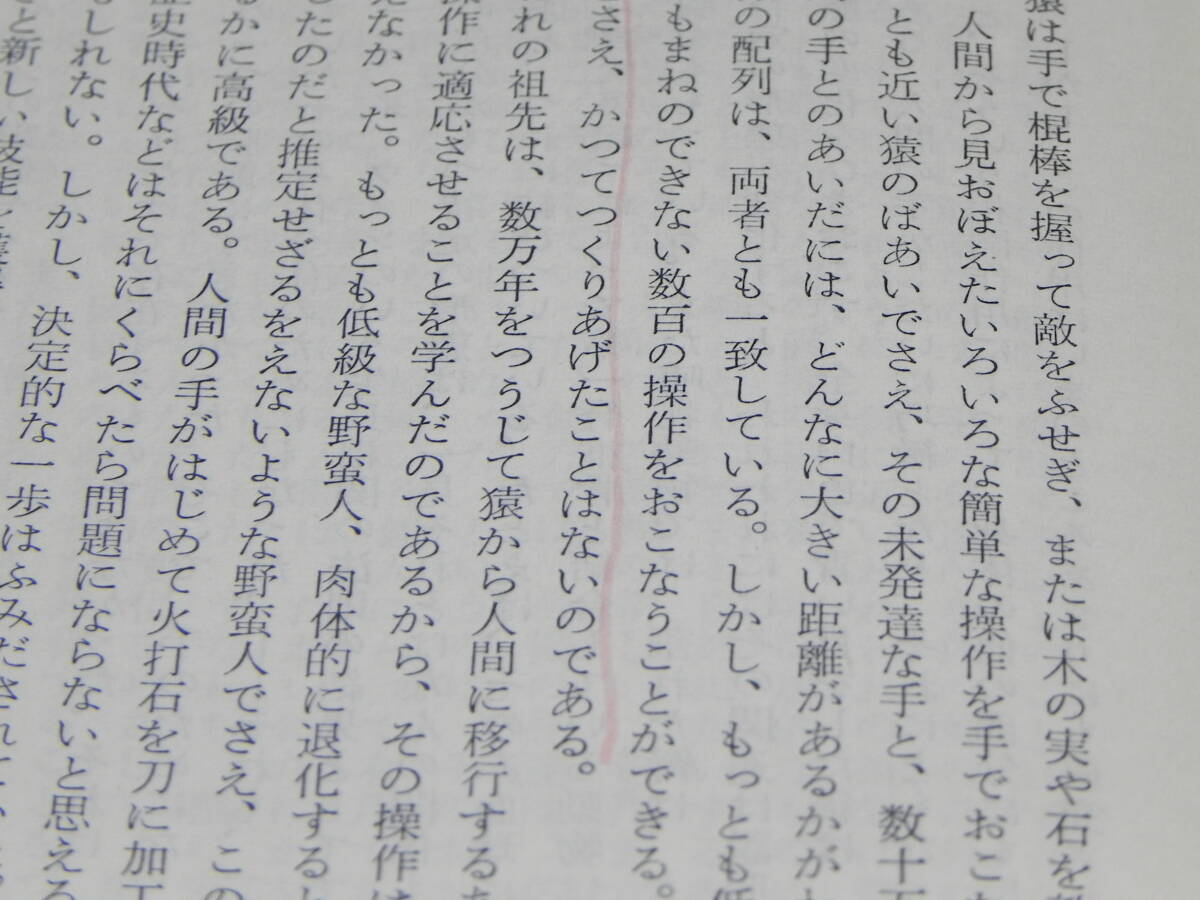 猿は手で棍棒を握って敵をふせぎ、または木の実や石を
人間から見おぼえたいろいろな簡単な操作を手でおこ
とも近い猿のばあいでさえ、その未発達な手と、数十万
の手とのあいだには、どんなに大きい距離があるかがわ
の配列は、両者とも一致している。しかし、もっとも低
もまねのできない数百の操作をおこなうことができる。
さえ、かつてつくりあげたことはないのである。
れの祖先は、数万年をつうじて猿から人間に移行するあ
操作に適応させることを学んだのであるから、その操作は
なかった。もっとも低級な野蛮人、肉体的に退化すると
したのだと推定せざるをえないような野蛮人でさえ、この
るかに高級である。人間の手がはじめて火打石を刀に加工
歴史時代などはそれにくらべたら問題にならないと思える
しれない。しかし、決定的な一歩はふみだされて
と新しい技能を